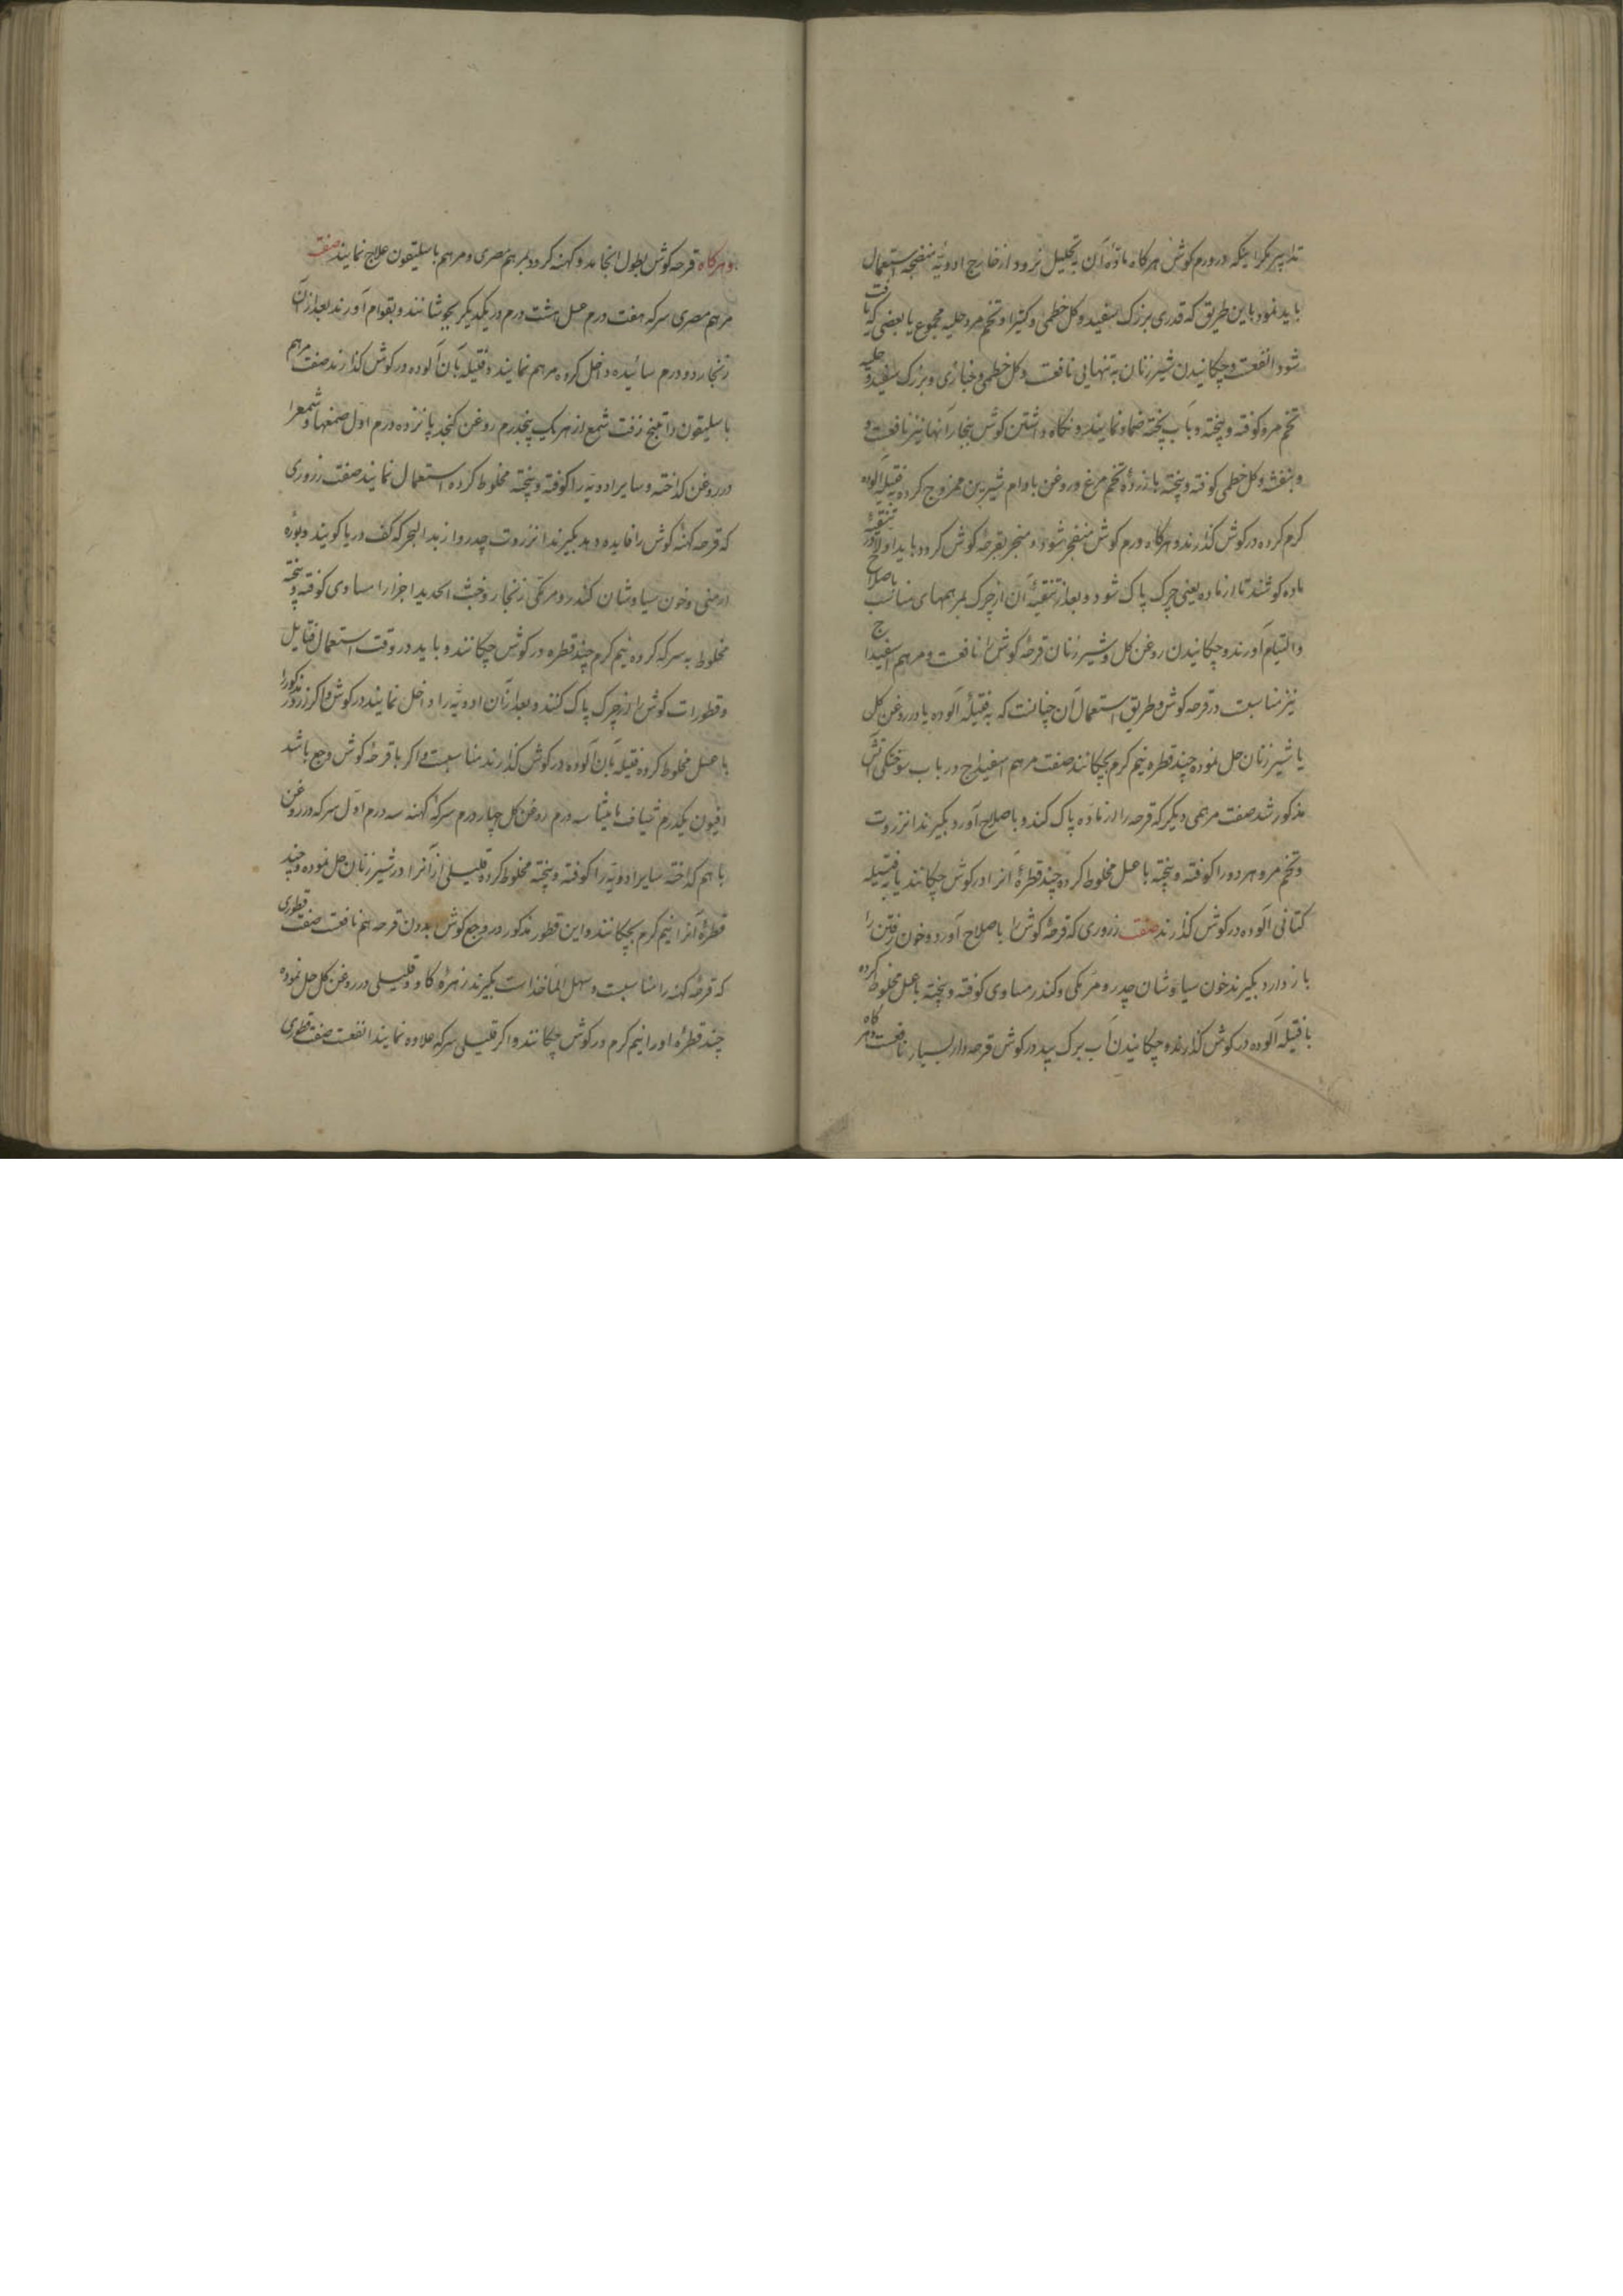 تدابیر مکر اینکه در ورم کوش هر کاه مادۀ آن به تحلیل نرود از خارج ادویۀ منضجه استعمال
باید نمود باین طریق که قدری بزرک سفید و کل خطمی و کتیرا و تخم مرو حلبه مجموع یا بعضی که یافت
شود انفعست و چکانیدن شیر زنان به تنهایی نافعست و کل خطمی و خبازی و بزرک سفید و حلبه
تخم مرو کوفته و پخته و بآب پخته ضماد نمایند و نکاه داشتن کوش ببخار آنها نیز نافعست و
و بنفشه و کل خطمی کوفته و پخته با زردۀ تخم مرغ و روغن بادام شیرین ممزوج کرده فتیله آلوده
کرم کرده در کوش کذارند و هر کاه ورم کوش منفجر شود و منجر بقرحۀ کوش کردد باید اولا در تنقیۀ
ماده کوشند تا از ماده یعنی چرک پاک شود و بعد از تنقیۀ آن از چرک بمرهمهای مناسب باصلاح
و التیام آورند و چکانیدن روغن کل و شیر زنان قرحۀ کوش را نافعست و مرهم اسفیداج
نیز مناسبست در قرحه کوش و طریق استعمال آن چنانست که به فتیلۀ آلوده یا در روغن کل
یا شیر زنان حل نموده چند قطره نیم کرم بچکانند صفت مرهم اسفیداج در باب سوختکی آتش
مذکور شد صفت مرهمی دیکر که قرحه را از ماده پاک کند و باصلاح آورد بکیرند انزروت
و تخم مرو هر دو را کوفته و پخته با عسل مخلوط کرده چند قطرۀ آنرا در کوش چکانند یا به فتیله
کتانی آلوده در کوش کذارند صفت زروری که قرحۀ کوش را باصلاح آورد و خون رفتن را
باز دارد بکیرند خون سیاوشان چدر و مر مکی و کندر مساوی کوفته و پخته با عسل مخلوط کرده
با فتیله آلوده در کوش کذارند و چکانیدن آب برک بید در کوش قرحه دار بسیار نافعست و هر کاه
و هر کاه قرحه کوش بطول انجامد و کهنه کردد بمرهم مصری و مرهم باسلیقون علاج نمایند صفت
مرهم مصری سرکه هفت درم عسل هشت درم در یکدیکر بجوشانند و بقوام آورند بعد از آن
زنجار دو درم سائیده داخل کرده مرهم نمایند و فتیله بآن آلوده در کوش کذارند صفت مرهم
باسلیقون راتینج زفت شمع از هر یک پنجدرم روغن کنجد پانزده درم اول صمغها و شمع را
در روغن کداخته و سایر ادویه را کوفته و پخته مخلوط کرده استعمال نمایند صفت زروری
که قرحه کهنۀ کوش را فایده دهد بکیرند انزروت چدروا زبد البحر که کف دریا کویند و بوره
ارمنی و خون سیاوشان کندر و مر مکی زنجار و خبث الحدید اجزا را مساوی کوفته و پخته
مخلوط به سرکه کرده نیم کرم چند قطره در کوش چکانند و باید در وقت استعمال فتایل
و قطورات کوش را از چرک پاک کنند و بعد از آن ادویه را داخل نمایند در کوش و اکر زرور مذکور را
با عسل مخلوط کرده فتیله بآن آلوده در کوش کذارند مناسبست و اکر با قرحۀ کوش وجع باشد
افیون یکدرم شیاف مامیثا سه درم روغن کل چهار درم سرکۀ کهنه سه درم اول سرکه در روغن
با هم کداخته سایر ادویه را کوفته و پخته مخلوط کرده قلیلی از آنرا در شیر زنان حل نموده و چند
قطرۀ آنرا نیم کرم بچکانند و این قطور مذکور در وجع کوش بدون قرحه هم نافعست صفت قطوری
که قرحۀ کهنه را مناسبست و سهل الماخذ است بکیرند زهرۀ کاو و قلیلی در روغن کل حل نموده
چند قطرۀ او را نیم کرم در کوش چکانند و اکر قلیلی سرکه علاوه نمایند انفعست صفت قطوری